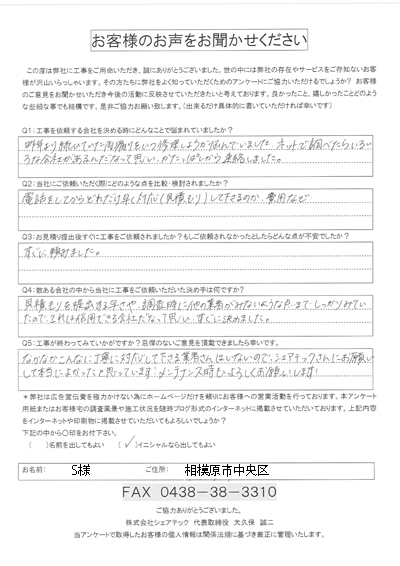 お客様のお声をお聞かせください
この度は弊社に工事をご用命いただき、誠にありがとうございました。世の中には弊社の存在やサービスをご存知ないお客
様が沢山いらっしゃいます。その方たちに弊社をよく知っていただくためのアンケートにご協力いただけるでしょうか？ お客様
のご意見をお聞かせいただき今後の活動に反映させていただきたいと考えております。良かったこと、嬉しかったことどのよう
な些細な事でも結構です。是非ご協力お願い致します。（出来るだけ具体的に書いていただければ幸いです）
Q1:工事を依頼する会社を決める時にどんなことで悩まれていましたか？
昨年より続いていた雨漏りをいつ修理しようか悩んでいました。ネットで調べたらいろい
ろな会社があるんだなって思い、かたっぱしから連絡しました。
Q2:当社にご依頼いただく際にどのような点を比較・検討されましたか？
電話をしてからどれだけ早く対応(見積もり)して下さるのか、費用など
Q3:お見積り提出後すぐに工事をご依頼されましたか？もしご依頼されなかったとしたらどんな点が不安でしたか？
すぐに頼みました。
Q4:数ある会社の中から当社に工事をご依頼いただいた決め手は何ですか？
見積もりを提出する早さや、調査時に他の業者がみないような点まで しっかりみてい
たので、これは信用できる会社だなって思い すぐに決めました。
Q5:工事が終わってみていかがですか？忌憚のないご意見を頂戴できましたら幸いです。
なかなかこんなに丁寧に対応して下さる業者さんはいないので、シェアテックさんにお願い
して本当によかったと思っています！メンテナンス時もよろしくお願いします！
＊弊社は広告宣伝費を極力かけない為にホームページだけを頼りにお客様への営業活動を行っております。本アンケート
用紙またはお客様宅の調査風景や施工状況を随時ブログ形式のインターネットに掲載させていただいております。上記内容
をインターネットや印刷物に掲載させていただいてもよろしいでしょうか？
下記の中から〇印をお付下さい。
（　）名前を出してもよい （✓）イニシャルなら出してもよい
お名前： S様 ご住所： 相模原市中央区
FAX 0438-38-3310
ご協力ありがとうございました。
株式会社シェアテック 代表取締役 大久保 誠二
当アンケートで取得したお客様の個人情報は関係法規に基づき厳正に管理いたします。